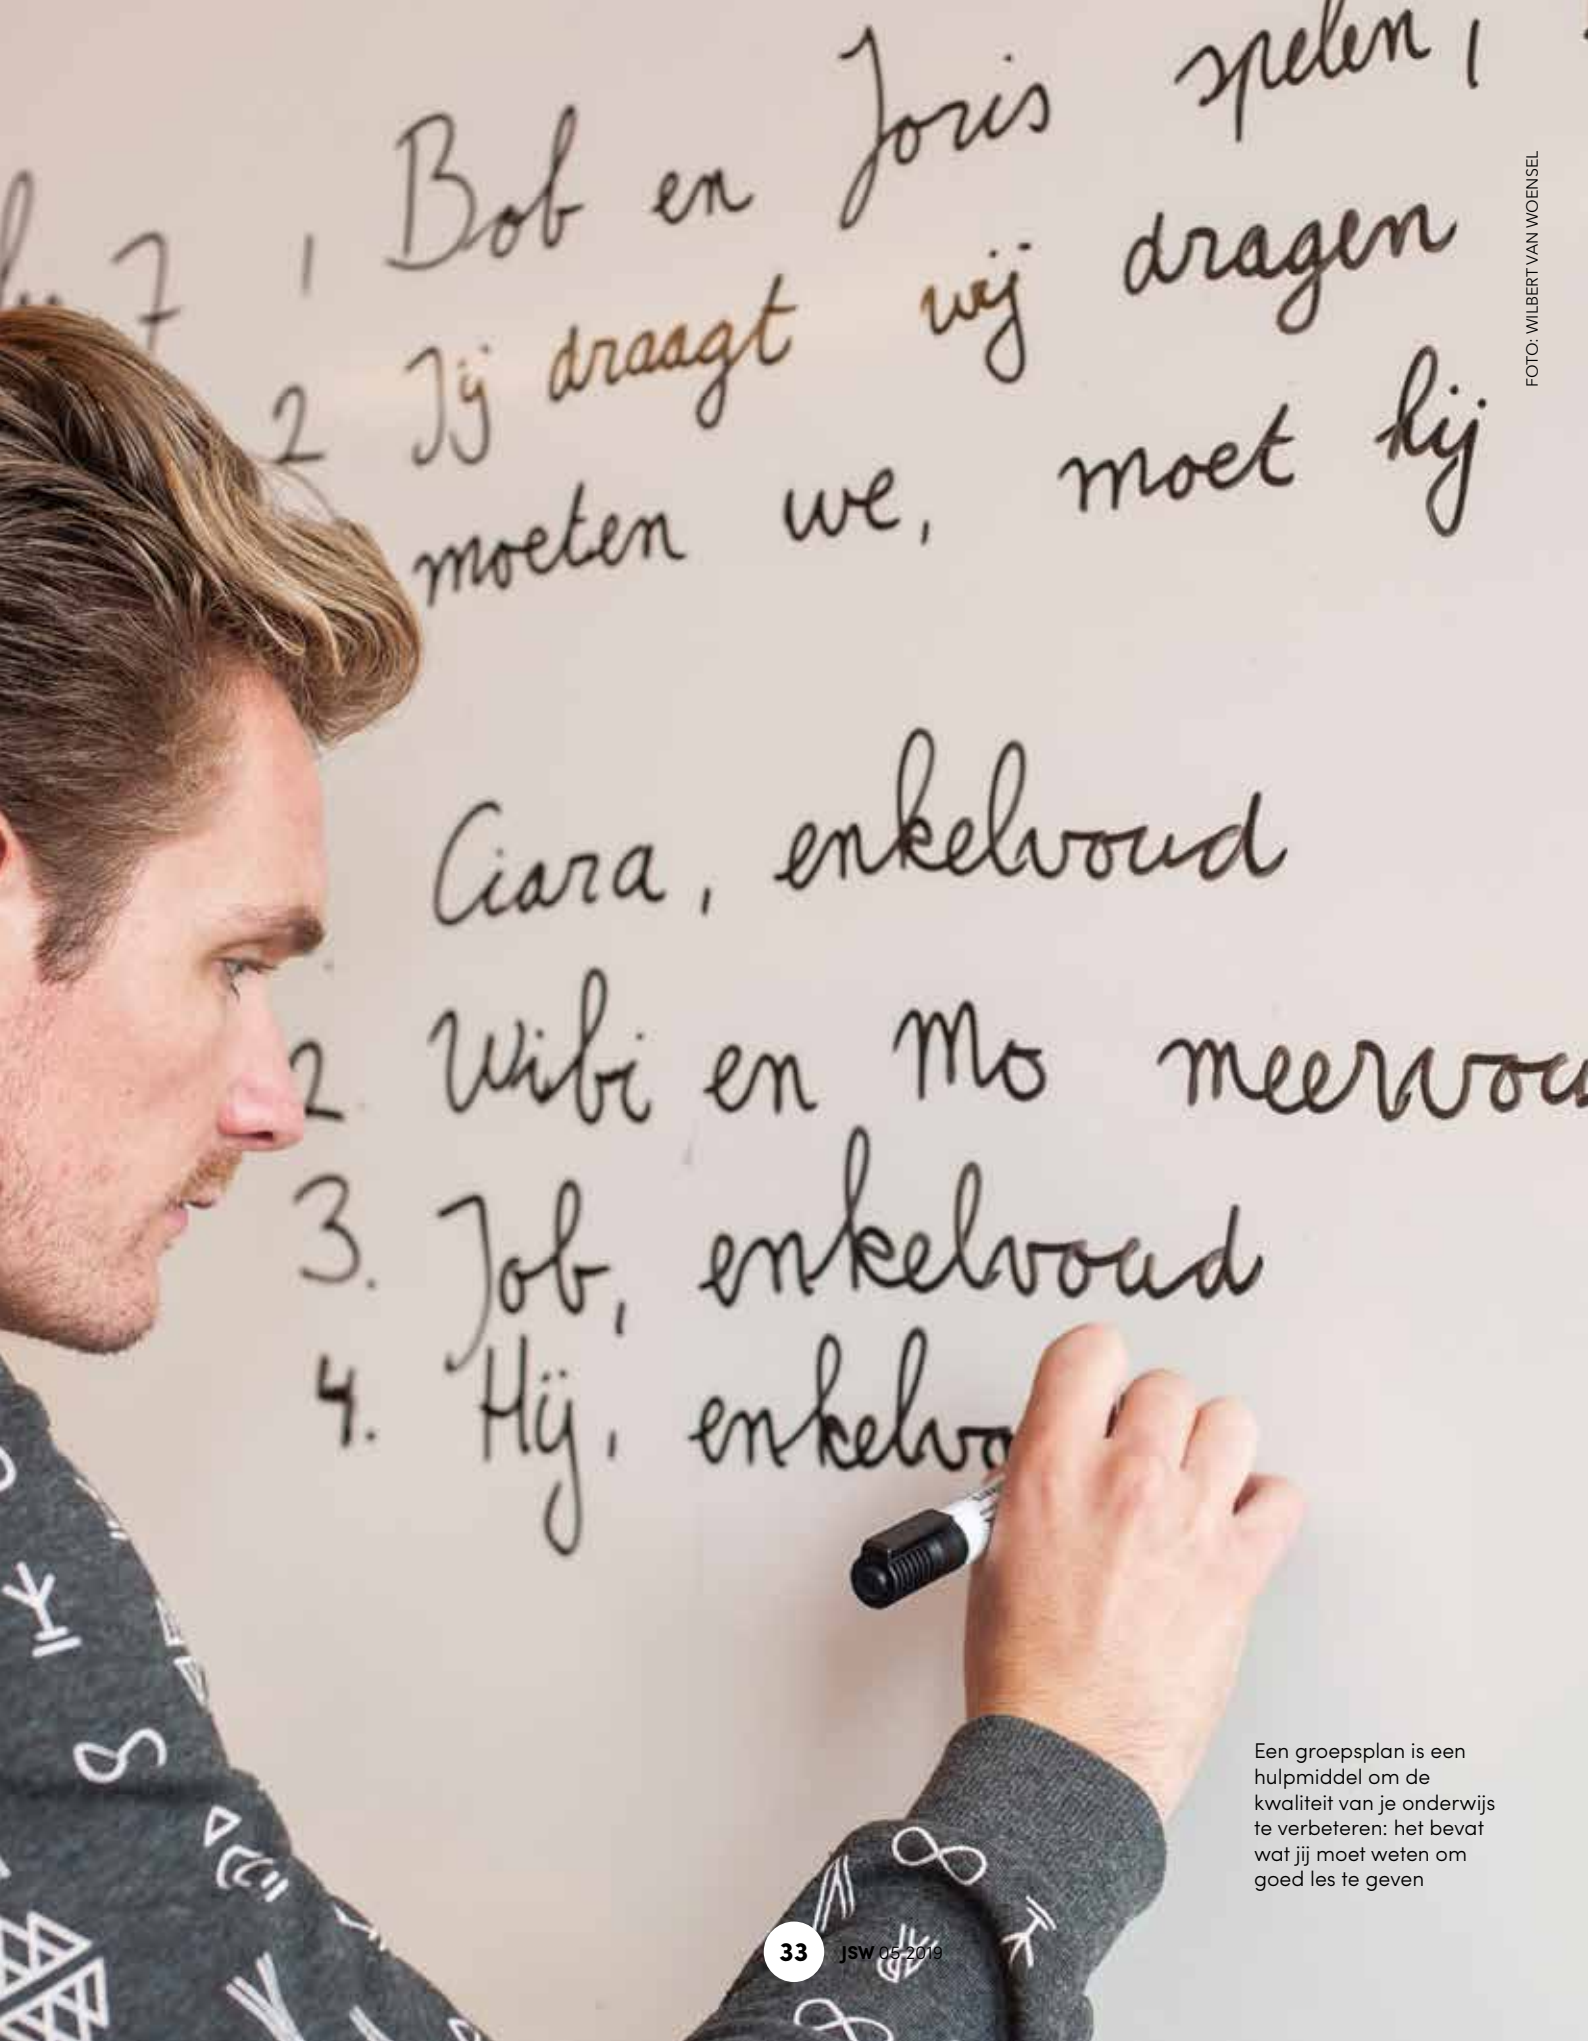 Bob en Joris spelen,
7 1
2 Jij draagt wij dragen
moeten we, moet hij
Ciara, enkelvoud
2. Wibi en Mo meervou
3. Job, enkelvoud
4. Hij, enkelvo
FOTO: WILBERT VAN WOENSEL
Een groepsplan is een
hulpmiddel om de
kwaliteit van je onderwijs
te verbeteren: het bevat
wat jij moet weten om
goed les te geven
33 JSW 05 2019